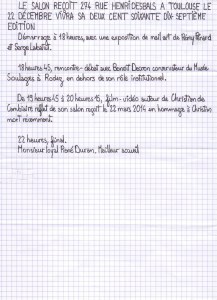 LE SALON REÇOIT 274 RUE HENRI DESBALS A TOULOUSE LE
22 DÉCEMBRE VIVRA SA DEUX CENT SOIXANTE DIX SEPTIÈME
EDITION
Démarrage à 18 heures, avec une exposition de mail art de Rémy Pénard
et Serge Luigetti.
18 heures 45, rencontre-débat avec Benoît Decron conservateur du Musée
Soulages à Rodez, en dehors de son rôle institutionnel.
De 19 heures 45 à 20 heures 15, film-vidéo autour de Christian de
Cambiaire reflet de son salon reçoit le 22 mars 2014 en hommage à Christian
mort récemment.
22 heures, final.
Monsieur loyal René Duran, Meilleur accueil